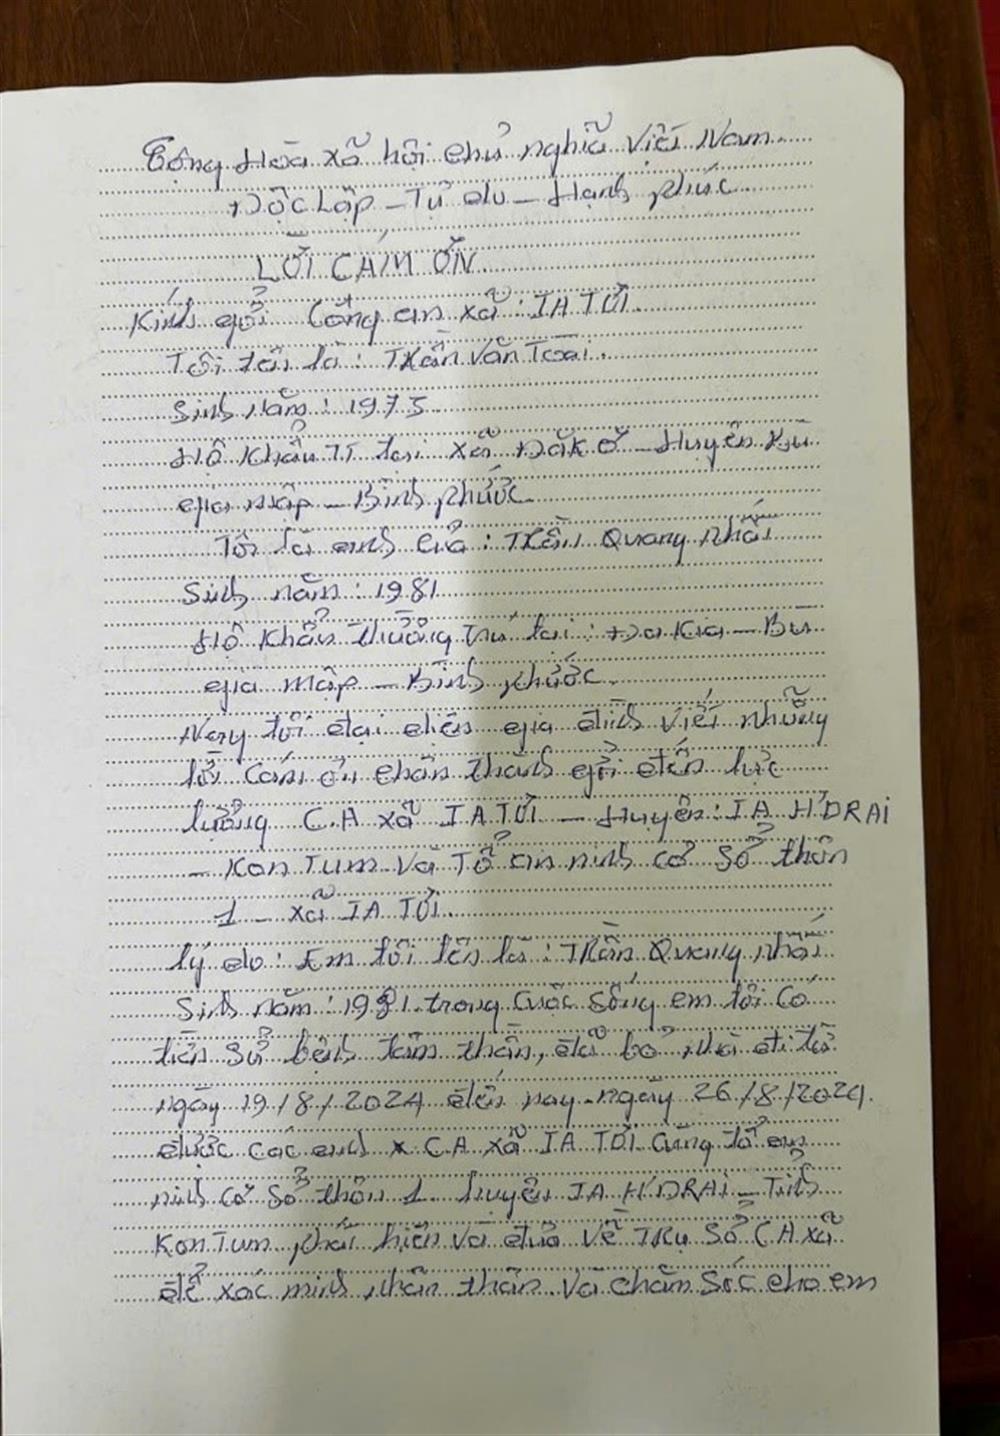 Cộng Hòa xã hội chủ nghĩa Việt Nam
Độc Lập - Tự do - Hạnh phúc
LỜI CẢM ƠN
Kính gởi Công an xã: IA TƠI
Tôi tên là: Trần Văn Toại.
Sinh năm: 1975
Hộ Khẩu TT tại xã Đăk Ơ - Huyện Bù
gia mập - Bình phước
Tôi là anh của: Trần Quang Nhất
Sinh năm: 1981
Hộ khẩu thường trú tại: Đa Kia - Bù
gia mập - Bình phước.
Nay tôi đại diện gia đình viết những
lời cảm ơn chân thành gởi đến lực
lượng C.A xã IA TƠI - Huyện: IA H'DRAI
- Kon Tum và Tổ an ninh cơ sở thôn
1 - xã IA TƠI.
Lý do: Em tôi tên là: Trần Quang Nhất
Sinh năm: 1981 trong cuộc sống em tôi có
tiền sử bệnh tâm thần, đã bỏ nhà đi từ
ngày 19/8/2024 đến nay ngày 26/8/2024
được các anh x C.A xã IA TƠI cùng tổ an
ninh cơ sở thôn 1 huyện IA H'DRAI - Tỉnh
Kon Tum phát hiện và đưa về Trụ Sở C.A xã
để xác minh nhân thân và chăm sóc cho em